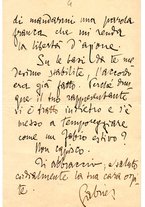 4
di mandarmi una parola
franca che mi renda
la libertà d'azione.
Su le basi da te me-
desimo stabilite, l'accordo
era già fatto. Perché dun-
que il tuo rappresentante
si è tratto indietro e s'è
messo a temporeggiare
come un Fabio estivo?
Non capisco.
Ti abbraccio, e saluto
cordialmente la tua cara ospi-
te.
Gabriel